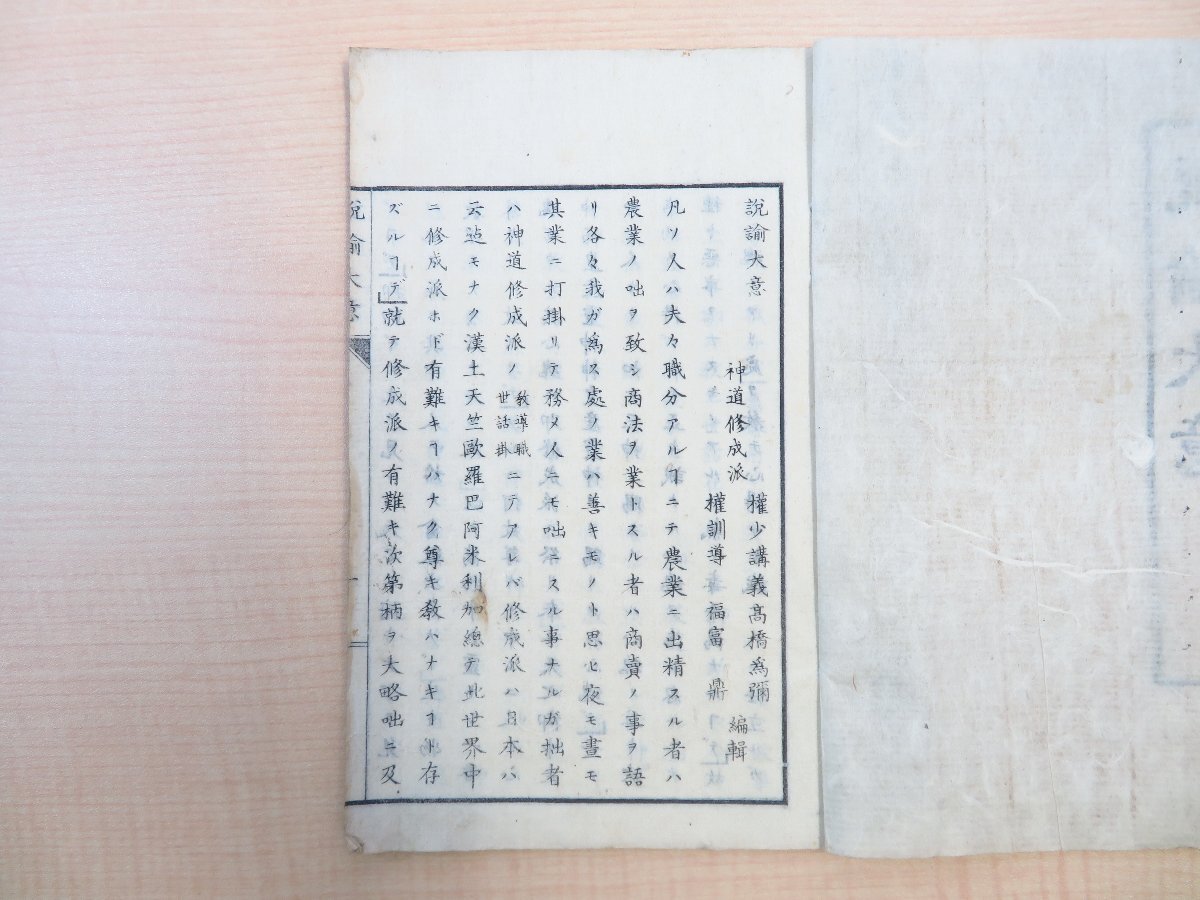 說諭大意
神道修成派
權少講義髙橋爲彌
權訓導 福富 鼎
編輯
凡ソ人ハ夫々職分アルヿニテ農業ニ出精スル者ハ
農業ノ咄ヲ致シ商法ヲ業トスル者ハ商賣ノ事ヲ語
リ各々我ガ爲ス處ノ業ハ善キモノト思ヒ夜モ晝モ
其業ニ打掛リテ務メ人ニモ咄ニスル事ナルガ拙者
ハ神道修成派ノ教導職世話掛ニテアレバ修成派ハ日本ハ
云迠モナク漢土天竺歐羅巴阿米利加總テ此世界中
ニ修成派ホド有難キヿハナク尊キ教ハナキヿト存
ズルヿデ」就テ修成派ノ有難キ次第柄ヲ大略咄ニ及
說諭大意